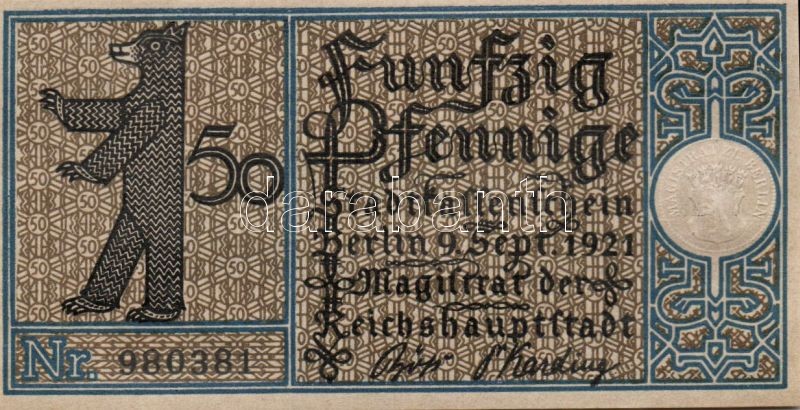 50
Funfzig
Pfennige
Stadtkassenschein
Berlin 9. Sept. 1921
Magistrat der
Reichshauptstadt
Böß
Nr. 980381
MAGISTRAT BERLIN
darabanth